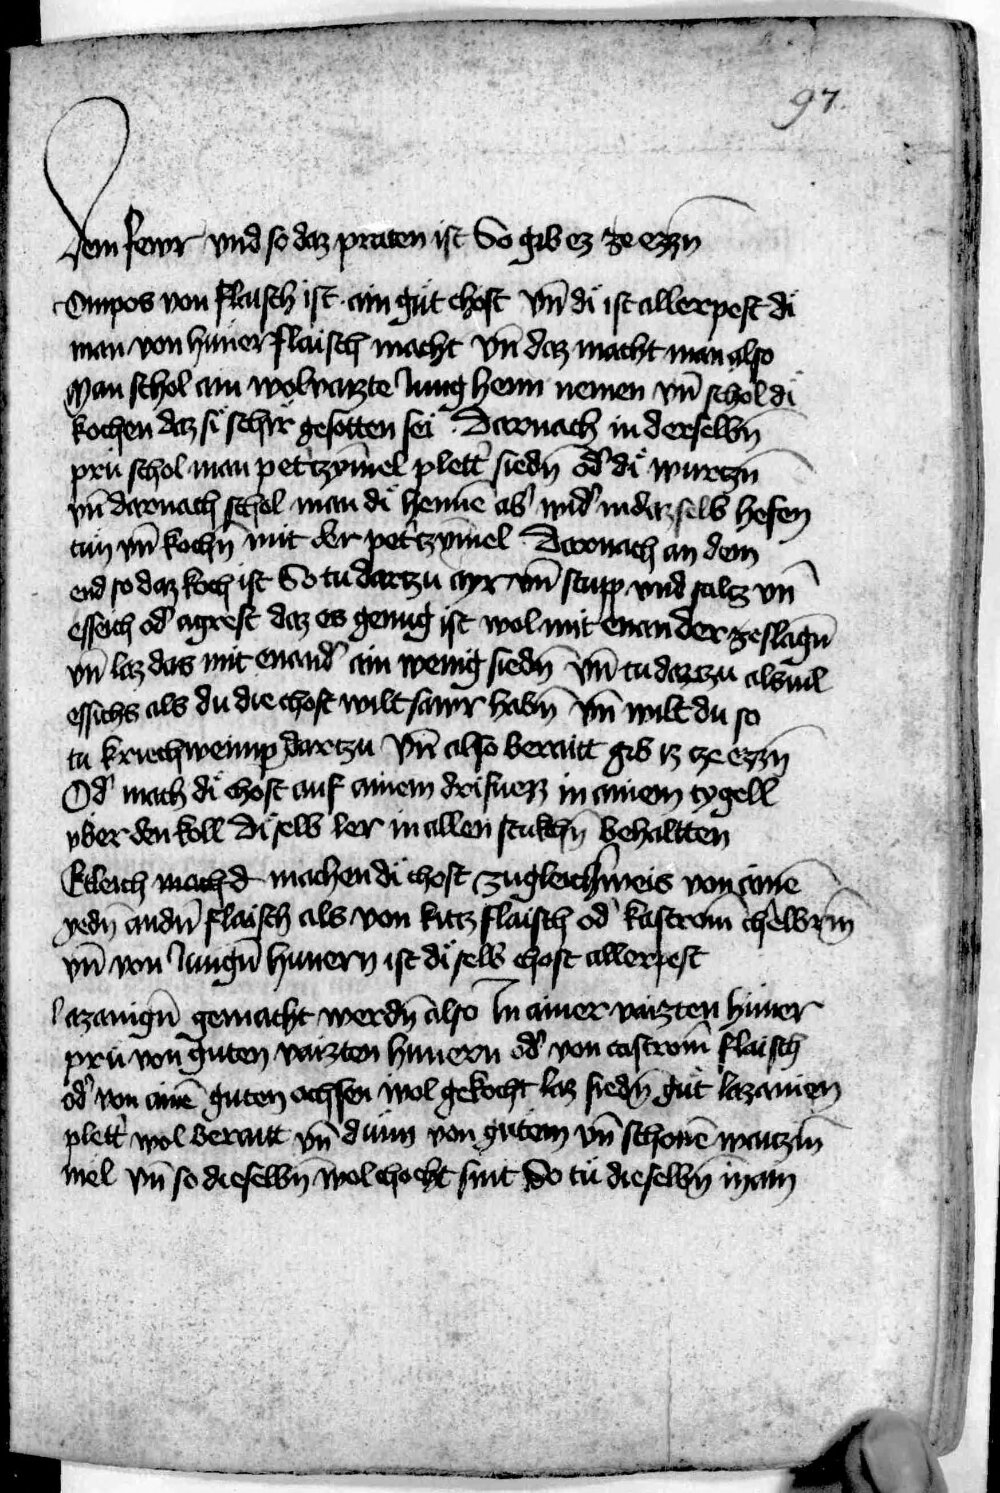 97.
dem fewr vnd so daz praten ist So gib ez ze ezzn̄
Ompos von flaisch ist ain gůt chost vn̄ di ist allerpest di
man von hüner flaisch macht vn̄ daz macht man also
Man schol ain wolvaizte Jung henn nemen vn̄ schol di
kochen daz si schir gesotten sei Darnach in derselbn̄
prü schol man pet'tzym̄el plett' siedn̄ od' di wurtzn̄
vn̄ darnach schol man di henne ab' wid' in daz selb hefen
tün vn̄ kochn̄ mit der pet'tzym̄el Darnach an dem
end so daz koch ist So tu dartzu ayr vn̄ stupp vnd saltz vn̄
esseich od' agrest daz es genug ist wol mit enander zeslagn̄
vn̄ laz das mit enand' ain wenig siedn̄ vn̄ tu dartzu alsuil
essichs als du die chost wilt sawr habn̄ vn̄ wilt du so
tu kriechweinnp dartzu vn̄ also berait gib iz tze ezzn̄
Od' mach di chost auf ainem drifuezz in ainem tygell
vber den koll Di selb ler in allen stukchn̄ behaltten
Etleich mach d machen di chost zugleich'weis von aine
yedn̄ andn̄ flaisch als von kitz flaisch od' kastrom̄ chelbrn̄
vn̄ von Jungn̄ hunern ist di selb chost allerpest
lazanign̄ gemacht werdn̄ also In ainer vaizten hüner
prü von guten vaizten hunern od' von castrom̄ flaisch
od' von ainē guten ochsen wol gekocht laz siedn̄ gůt lazanien
plett' wol berait vn̄ dünn von gůtem vn̄ schonē waitzin̄
mel vn̄ so dieselbn̄ wol chocht sint So tü dieselbn̄ in ain